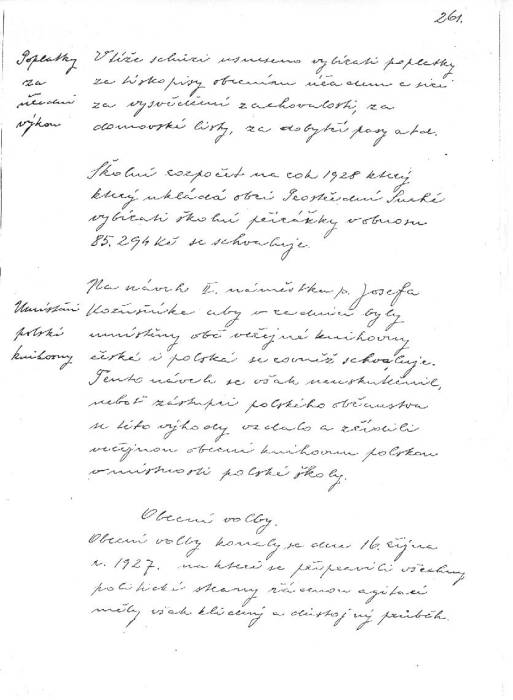 261.
Poplatky
za
úřední
výkon
V téže schůzi usneseno vybírati poplatky
za tiskopisy obecním úřadem a sice
za vysvědčení zachovalosti, za
domovské listy, za dobytčí pasy a t d.
Školní rozpočet na rok 1928 který
který ukládá obci Prostřední Suché
vybírati školní přirážky v obnosu
85.294 Kč se schvaluje.
Umístění
polské
knihovny
Na návrh II. náměstka p. Josefa
aby v radnici byly
umístěny obě veřejné knihovny
česká i polská se rovněž schvaluje.
Tento návrh se však neuskutečnil,
neboť zástupci polského občanstva
se této výhody vzdalo a zřídili
veřejnou obecní knihovnu polskou
v místnosti polské školy.
Obecní volby.
Obecní volby konaly se dne 16. října
r. 1927. na které se připravili všechny
politické strany řádnou agitací
měly však klidný a důstojný průběh.